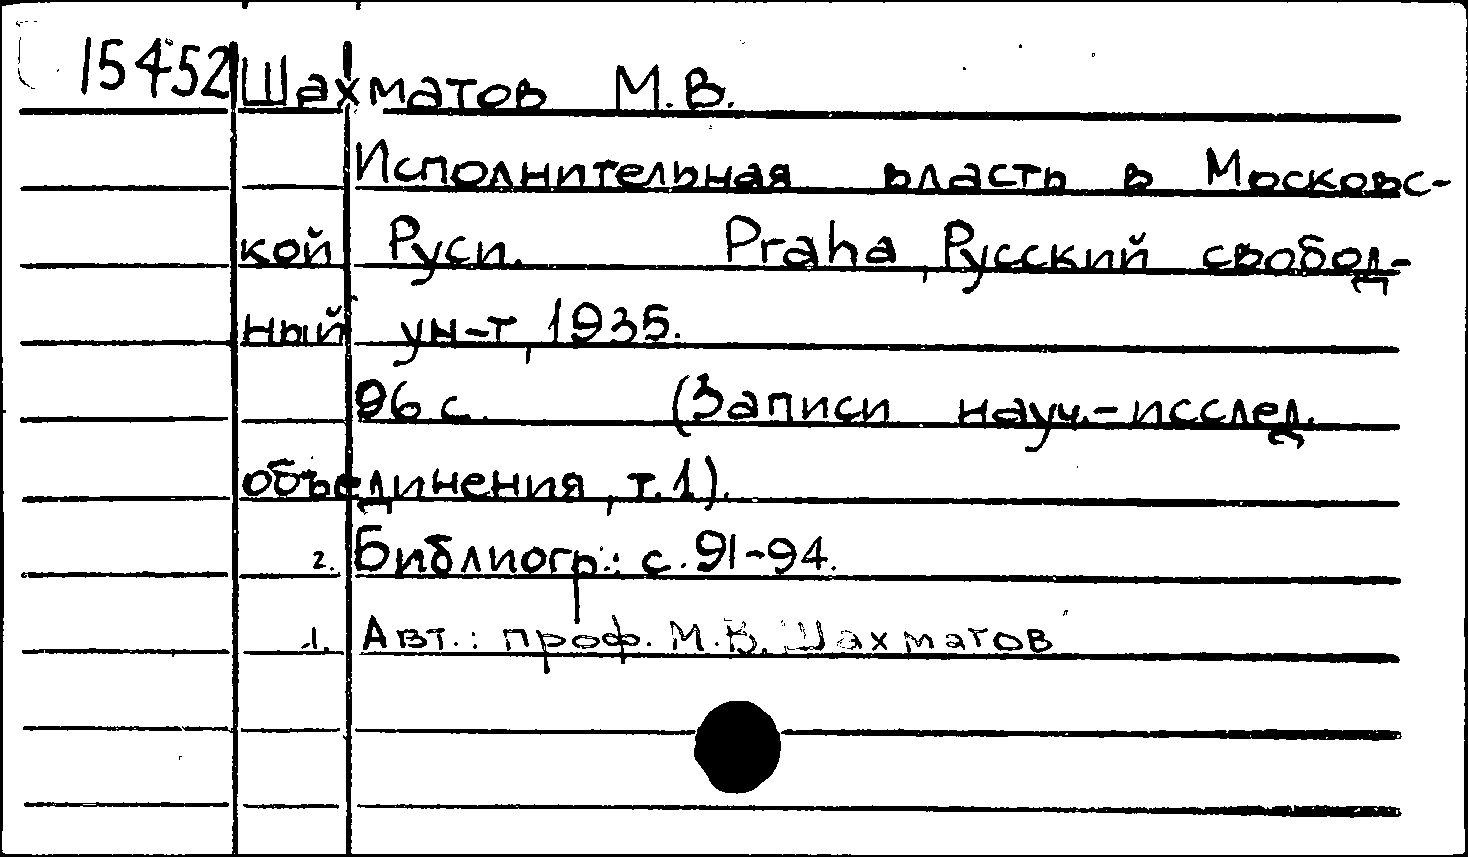 15452 Шахматов М.В.
Исполнительная власть в Московс-
кой Руси. Praha, Русский свобод-
ный ун-т, 1935.
96 с. (Записи науч.-исслед.
объединения, т.1).
2. Библиогр.: с. 91-94.
1. Авт.: проф. М.В. Шахматов